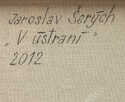 Jaroslav Šerých
"V ústraní"
2012